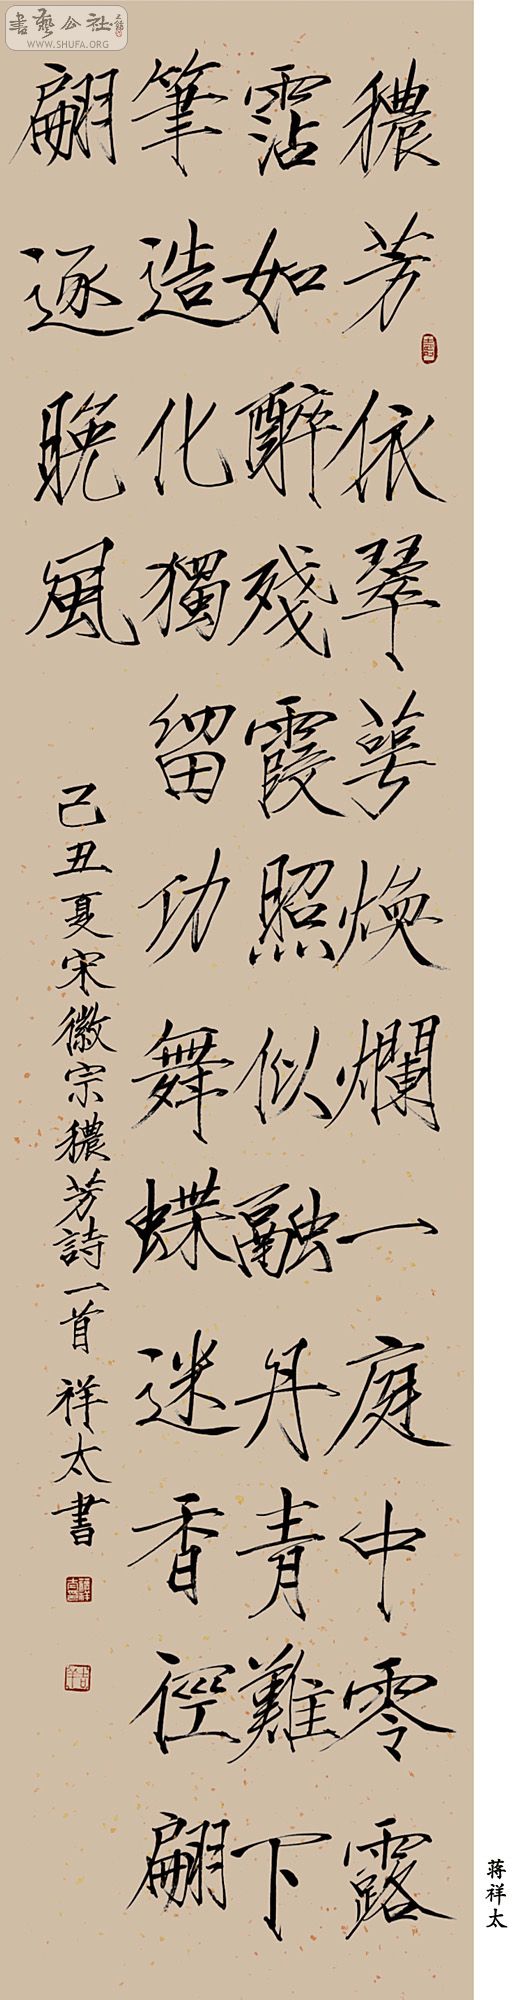 書藝公社
WWW.SHUFA.ORG
穠芳依翠萼煥爛一庭中零露
霑如醉殘霞照似融丹青難下
筆造化獨留功舞蝶迷香徑翩
翩逐晚風
己丑夏宋徽宗穠芳詩一首 祥太書
蒋祥太